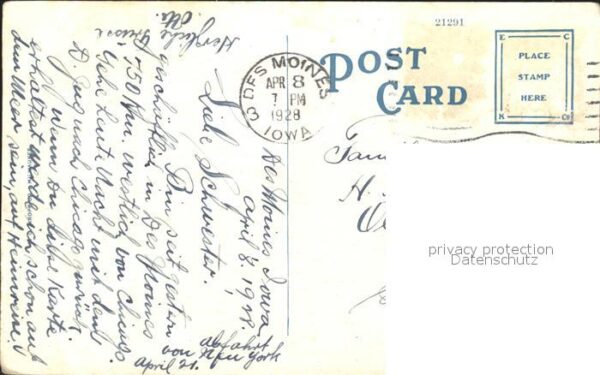 21291
POST CARD
E C
PLACE
STAMP
HERE
K Co
DES MOINES
APR 8
7 PM
1928
IOWA
Des Moines Iowa
April 8. 1928.
Liebe Schwester.
Bin seit gestern
geschäftlich in Des Moines
750 Km. westlich von Chicago
Fahre heute Nacht mit dem
Zug nach Chicago zurück.
Wenn Du diese Karte
erhältst werde ich schon auf
dem Meer sein, auf Heimreise.
Herzliche Grüsse
abfahrt
von New York
April 21.
Fam
H.
privacy protection
Datenschutz